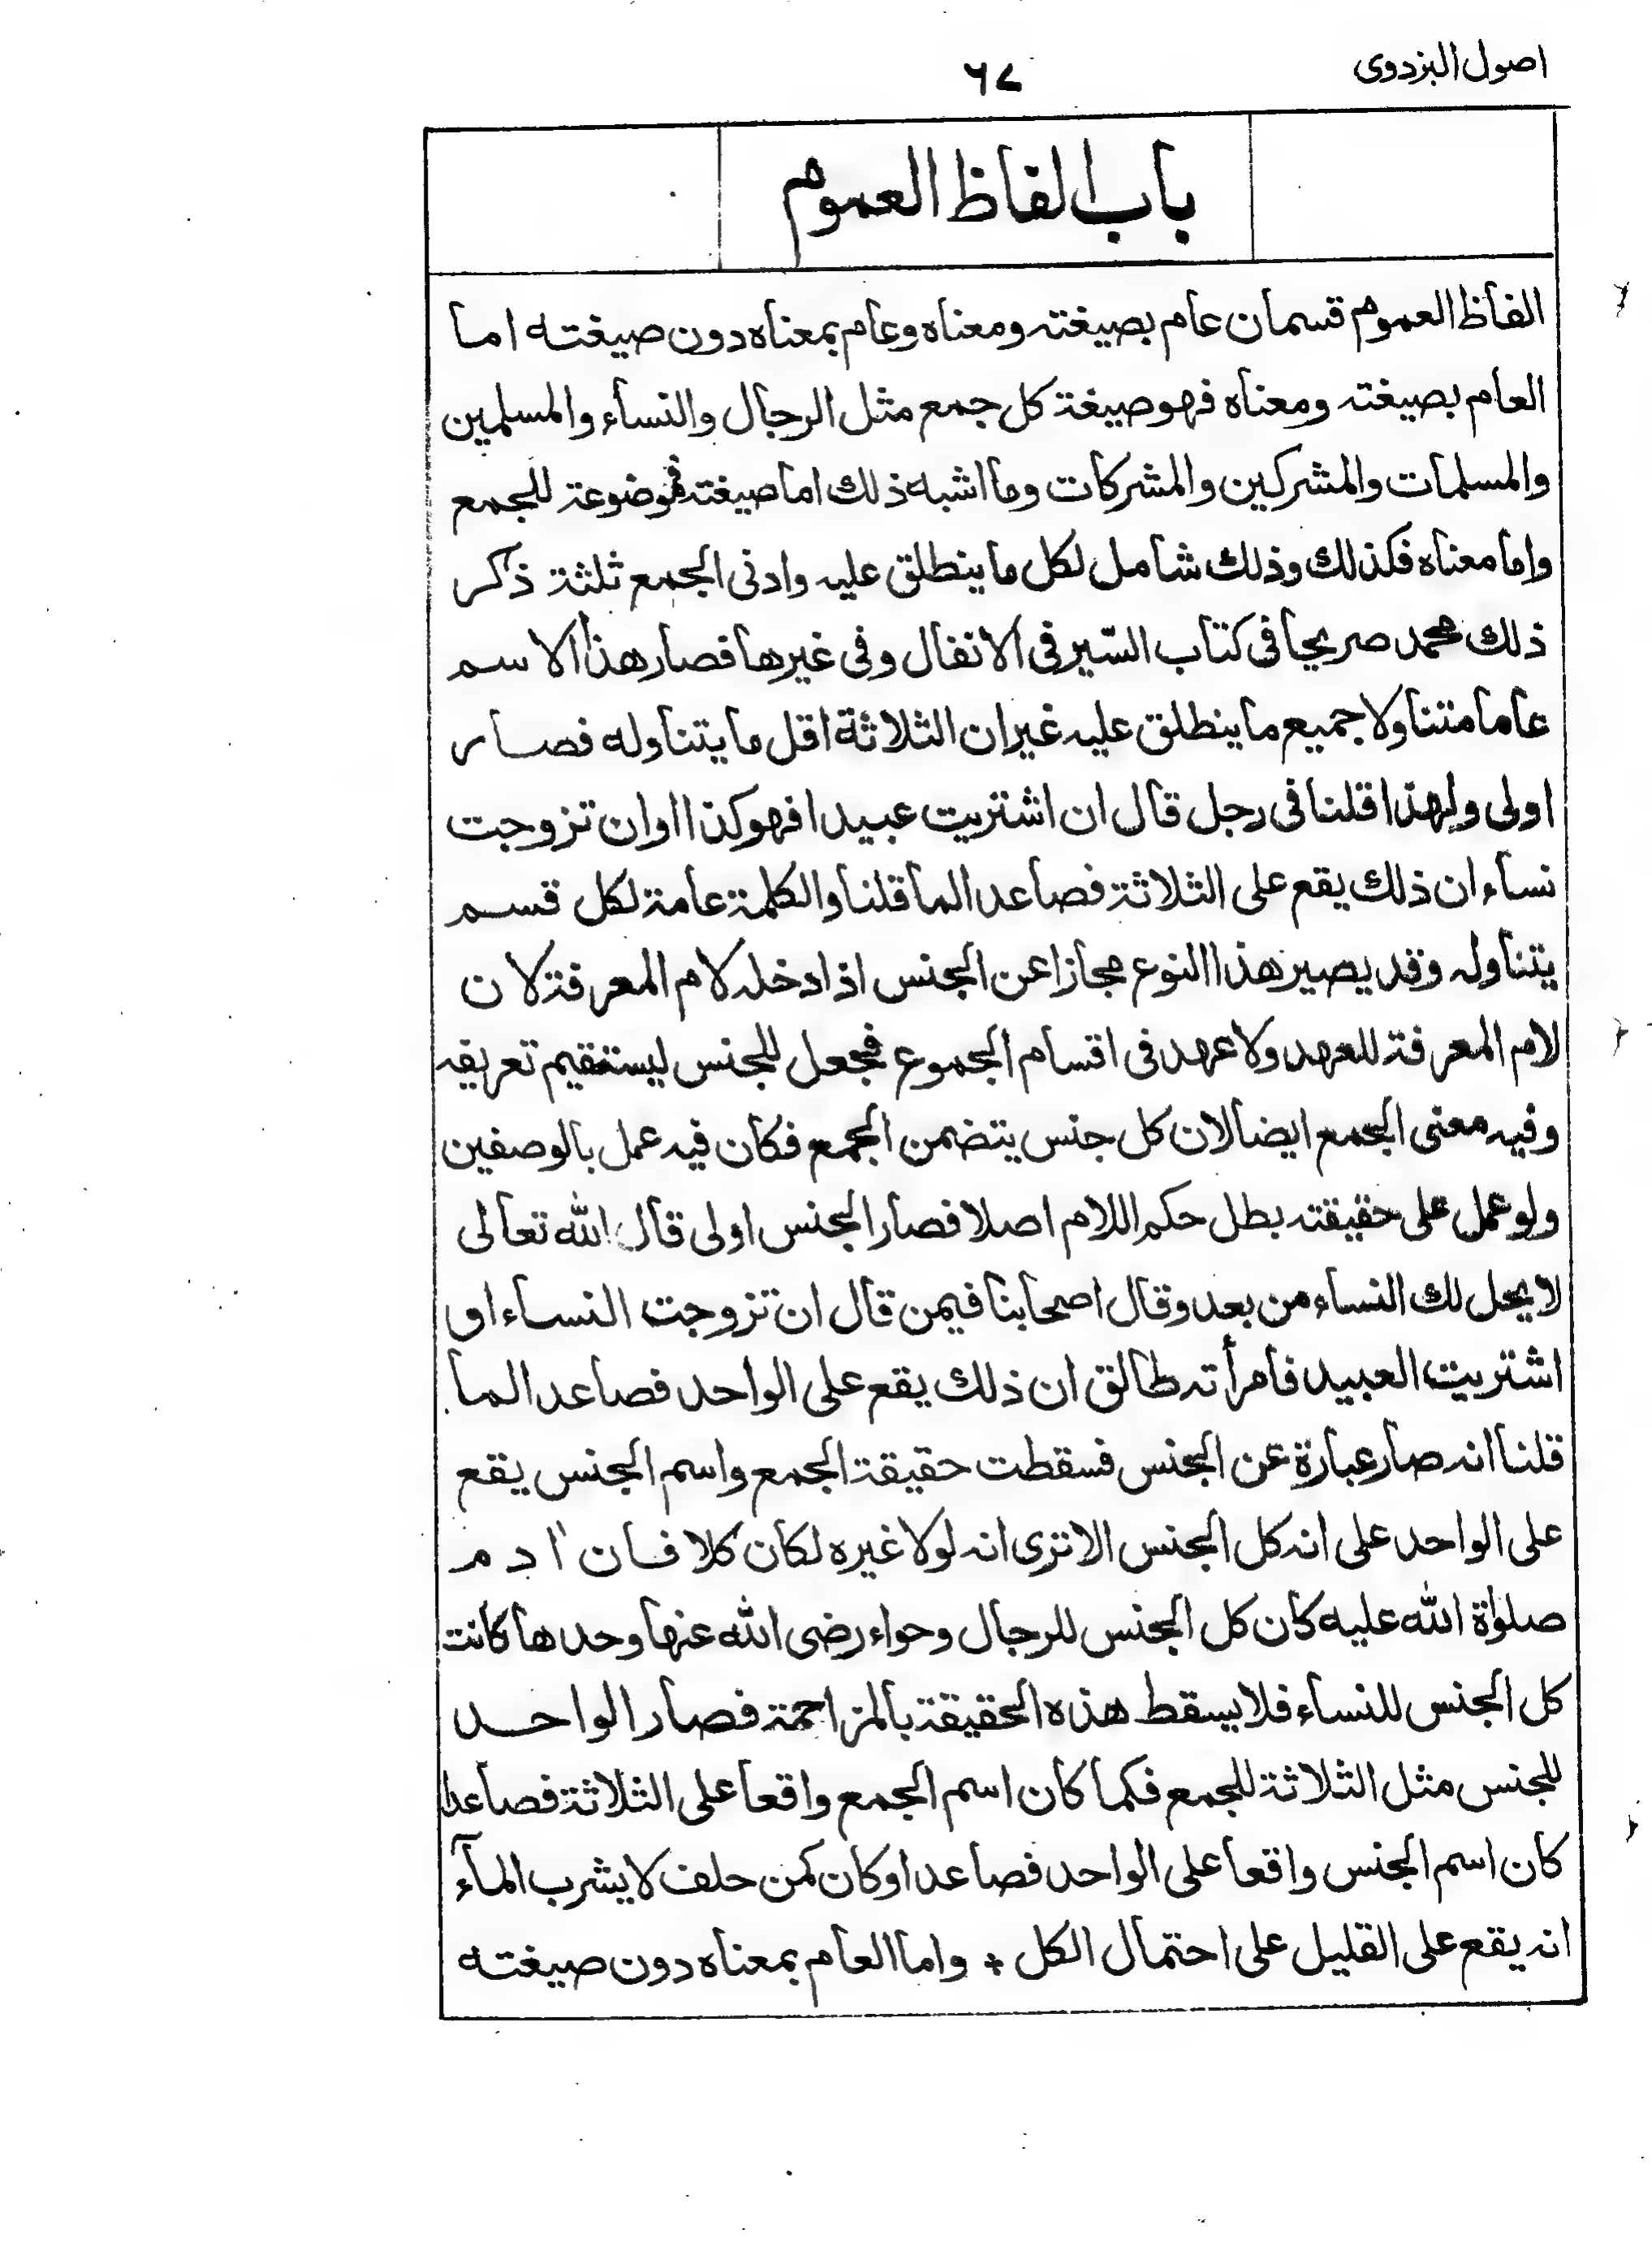 اصول البزدوى
٦٧
باب الفاظ العموم
الفاظ العموم قسمان عام بصيغته ومعناه وعام بمعناه دون صيغته اما
العام بصيغته ومعناه فهو صيغة كل جمع مثل الرجال والنساء والمسلمين
والمسلمات والمشركين والمشركات وما اشبه ذلك اما صيغته فموضوعة للجمع
واما معناه فكذلك وذلك شامل لكل ما ينطلق عليه وادنى الجمع ثلثة ذكر
ذلك محمد صريحا فى كتاب السّير فى الانفال وفى غيرها فصار هذا الاسم
عاما متناولا جميع ما ينطلق عليه غير ان الثلاثة اقل ما يتناوله فصار
اولى ولهذا قلنا فى رجل قال ان اشتريت عبيدا فهو كذا او ان تزوجت
نساء ان ذلك يقع على الثلاثة فصاعدا لما قلنا والكلمة عامة لكل قسم
يتناوله وقد يصير هذا النوع مجازا عن الجنس اذا دخله لام المعرفة لان
لام المعرفة للعهد ولا عهد فى اقسام الجموع فجعل للجنس ليستقيم تعريفه
وفيه معنى الجمع ايضا لان كل جنس يتضمن الجمع فكان فيه عمل بالوصفين
ولو عمل على حقيقته بطل حكم اللام اصلا فصار الجنس اولى قال الله تعالى
لا يحل لك النساء من بعد وقال اصحابنا فيمن قال ان تزوجت النساء او
اشتريت العبيد فامرأته طالق ان ذلك يقع على الواحد فصاعدا لما
قلنا انه صار عبارة عن الجنس فسقطت حقيقة الجمع واسم الجنس يقع
على الواحد على انه كل الجنس الا ترى انه لولا غيره لكان كلا فان اٰدم
صلوٰة الله عليه كان كل الجنس للرجال وحواء رضى الله عنها وحدها كانت
كل الجنس للنساء فلا يسقط هذه الحقيقة بالمزاحمة فصار الواحد
للجنس مثل الثلاثة للجمع فكما كان اسم الجمع واقعا على الثلاثة فصاعدا
كان اسم الجنس واقعا على الواحد فصاعدا وكان كمن حلف لا يشرب المآء
انه يقع على القليل على احتمال الكل + واما العام بمعناه دون صيغته